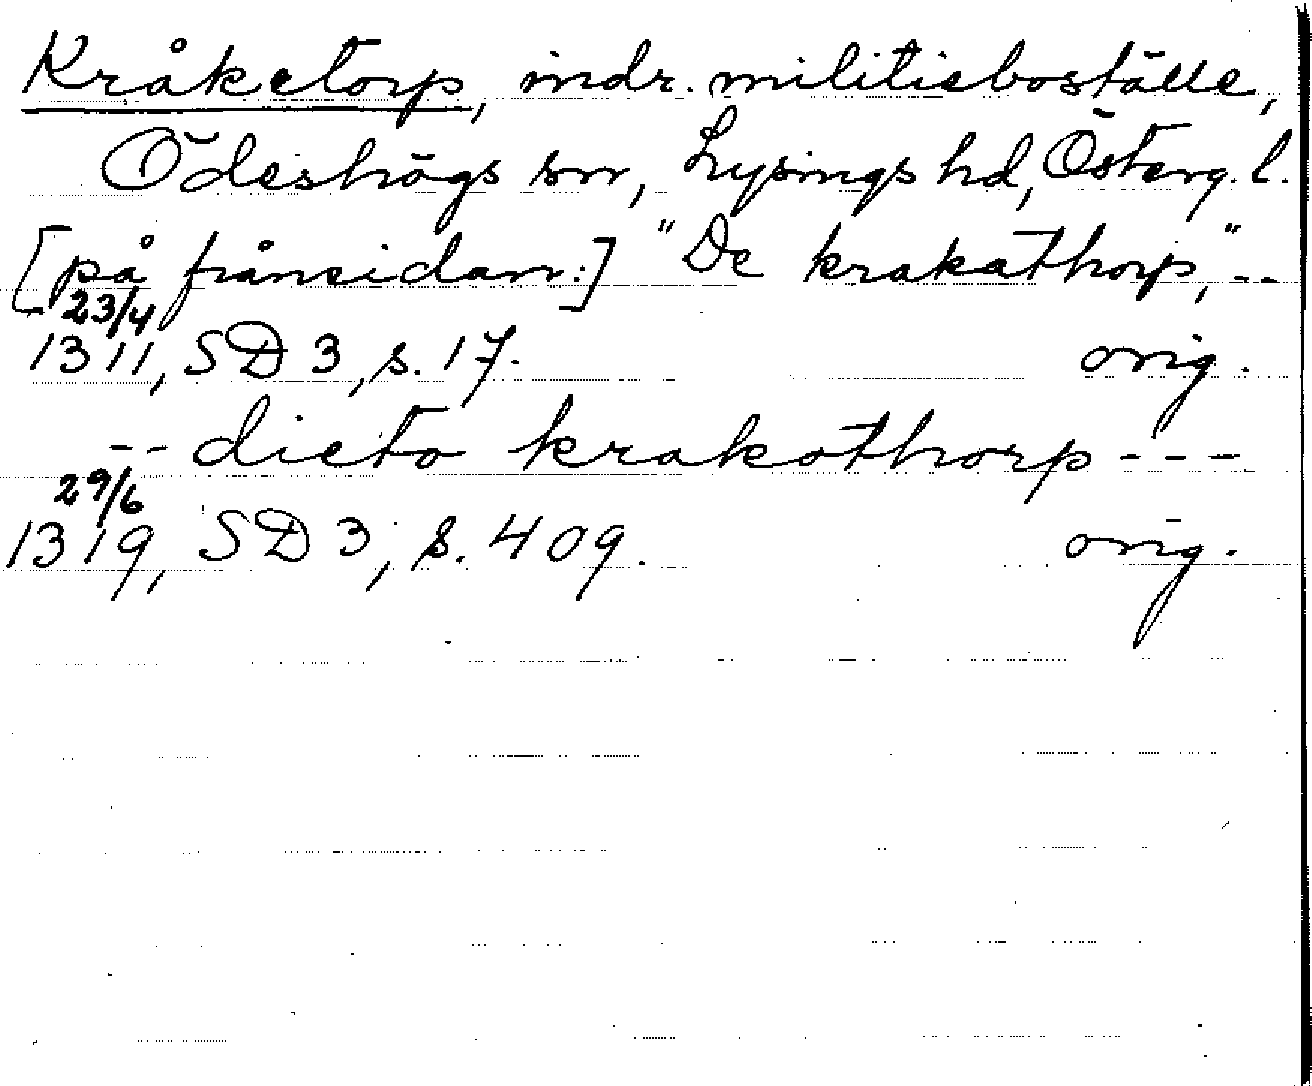 Kråketorp, indr. militieboställe,
Ödeshögs sn, Lysings hd, Österg. l.
[på frånsidan:] "De krakathorp," --
23/4
1311, SD 3, s. 17. orig.
-- dicto krakathorp ---
29/6
1319, SD 3, s. 409. orig.